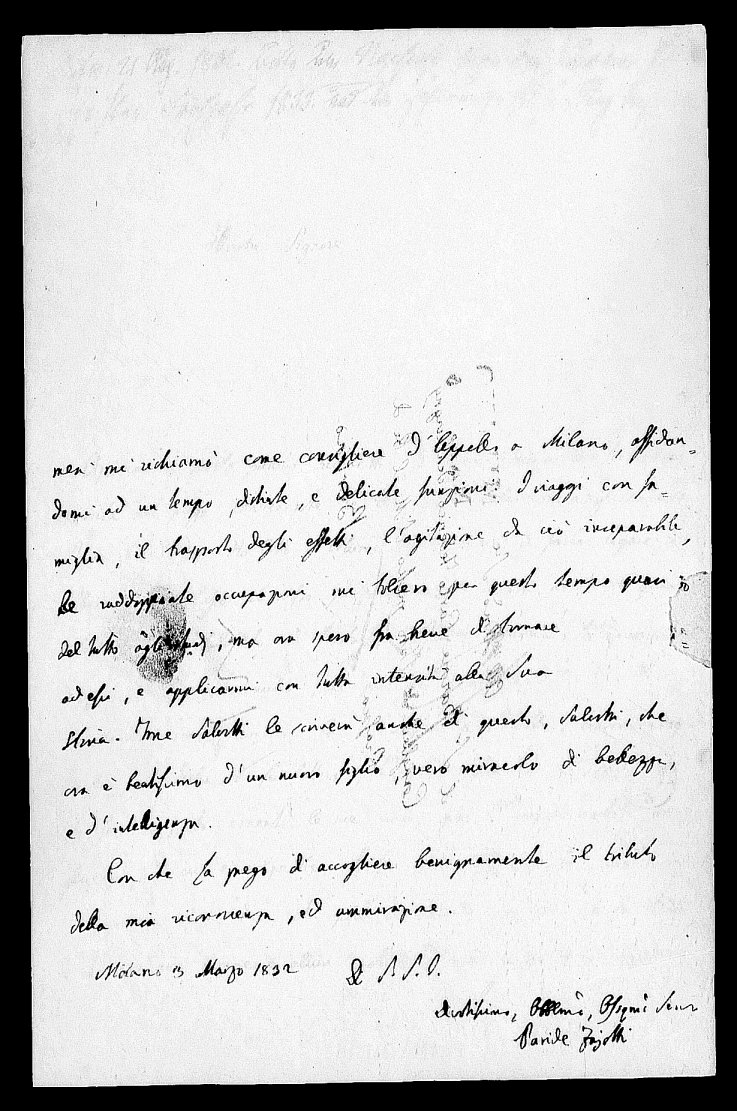 mera mi richiamò come consigliere d'Appello a Milano, affidan-
domi ad un tempo, distinte, e delicate funzioni. I viaggi con fa-
miglia, il trasporto degli effetti, l'agitazione da ciò inseparabile,
le raddoppiate occupazioni mi tolsero per questo tempo quasi
del tutto agli studj, ma ora spero fra breve di tornare
ad essi, e applicarmi con tutta intensità alla Sua
Storia. Salvotti le scriverà anche di questo, Salvotti, che
ora è beatissimo d'un nuovo figlio, vero miracolo di bellezza,
e d'intelligenza.
Con che La prego di accogliere benignamente il tributo
della mia riconoscenza, ed ammirazione.
Milano 3 Marzo 1832 Di S. S. I.
Paride Zajotti